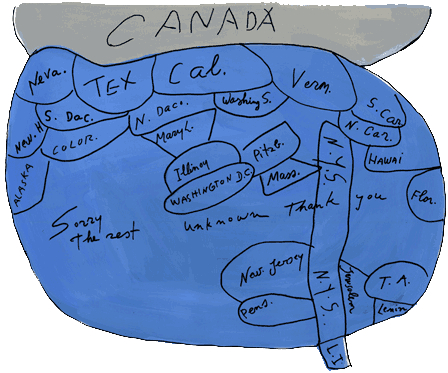 CANADA
Neva.
TEX
Cal.
Verm.
S. Car
S. Dac.
N. Dac.
Washing S.
N. Car.
New. H
COLOR.
Mary L.
Pitzb.
N.Y.S.
HAWAI
ALASKA
Illinoy
WASHINGTON D.C.
Mass.
Flor.
Sorry
The rest
unknown Thank you
New. Jersey
Pens.
N.Y.S.
Jerusalem
T. A.
Lenin
L I